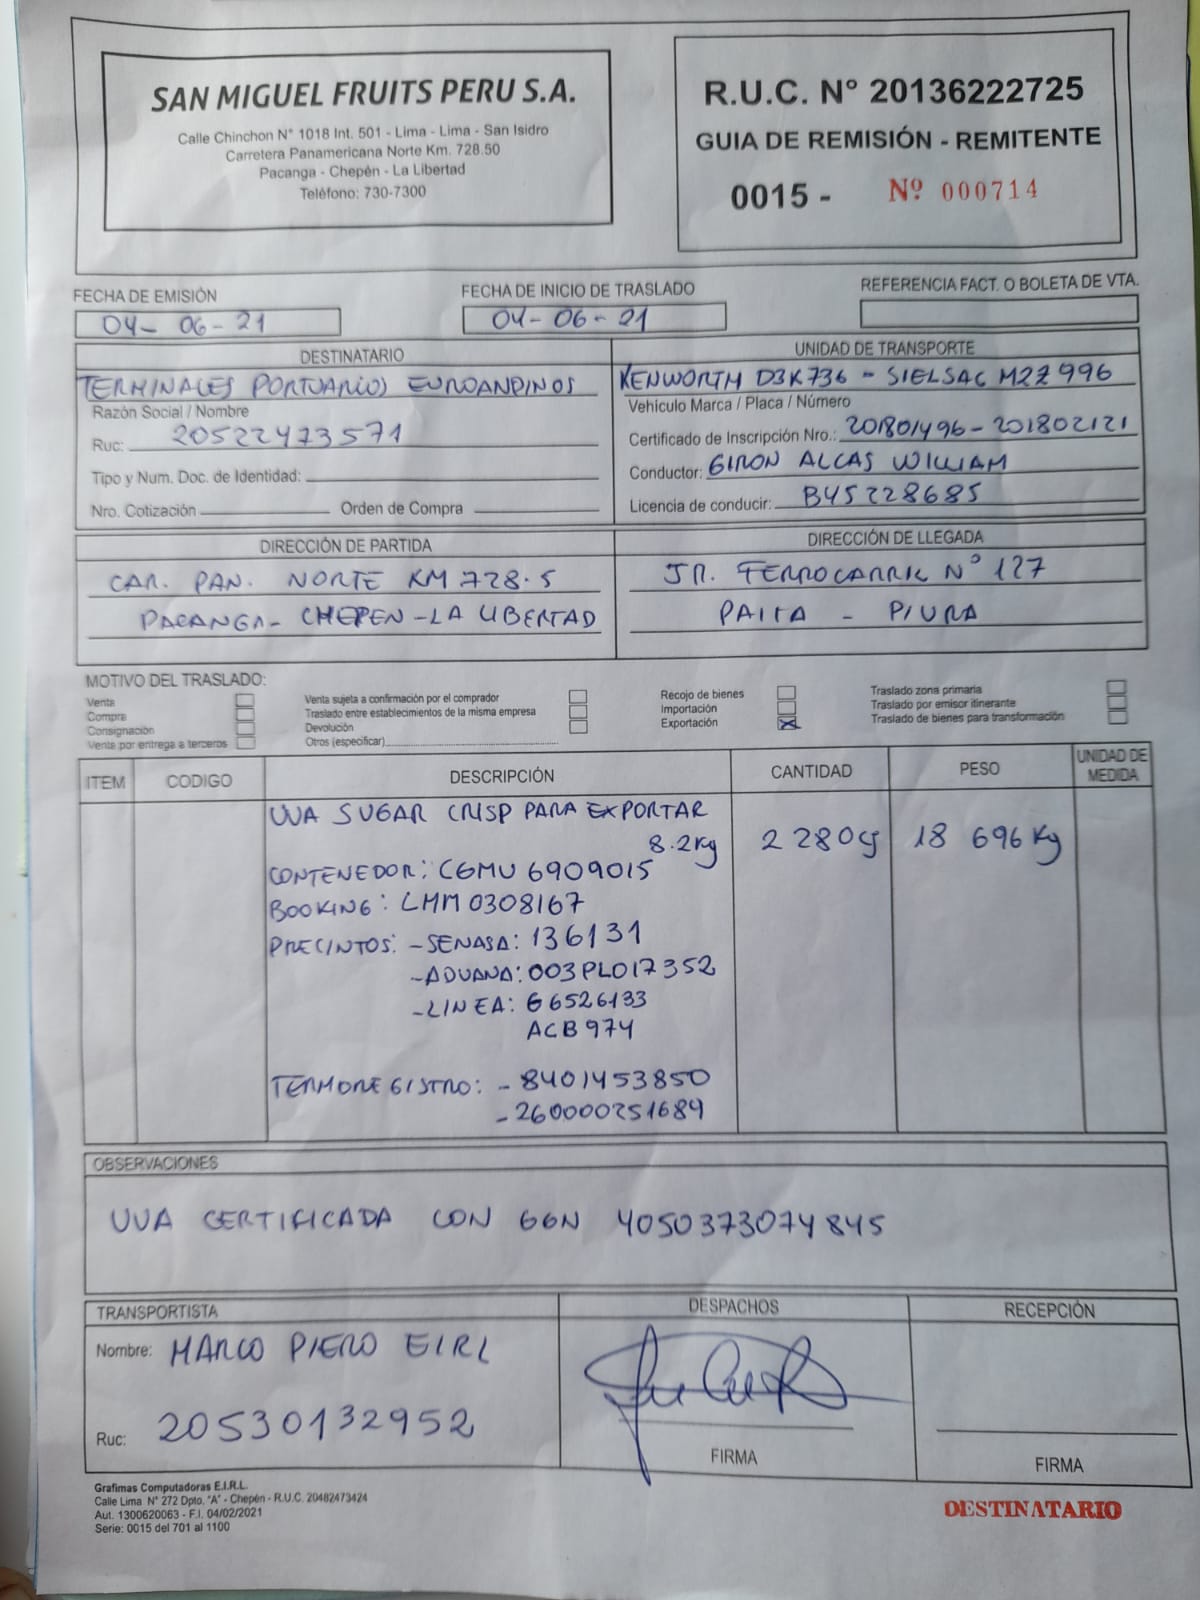 SAN MIGUEL FRUITS PERU S.A.
Calle Chinchon N° 1018 Int. 501 - Lima - Lima - San Isidro
Carretera Panamericana Norte Km. 728.50
Pacanga - Chepén - La Libertad
Teléfono: 730-7300
R.U.C. N° 20136222725
GUIA DE REMISIÓN - REMITENTE
0015 - Nº 000714
FECHA DE EMISIÓN
04- 06-21
FECHA DE INICIO DE TRASLADO
04- 06-21
REFERENCIA FACT. O BOLETA DE VTA.
DESTINATARIO
TERMINALES PORTUARIOS EUROANDINOS
Razón Social / Nombre
Ruc: 20522473571
Tipo y Num. Doc. de Identidad:
Nro. Cotización Orden de Compra
UNIDAD DE TRANSPORTE
KENWORTH D3K736 - SIELSAC M2Z996
Vehículo Marca / Placa / Número
Certificado de Inscripción Nro.: 201801496-201802121
Conductor: GIRON ALCAS WILLIAM
Licencia de conducir: B45228685
DIRECCIÓN DE PARTIDA
CAR. PAN. NORTE KM 728.5
PACANGA- CHEPEN -LA LIBERTAD
DIRECCIÓN DE LLEGADA
JR. FERROCARRIL N° 127
PAITA - PIURA
MOTIVO DEL TRASLADO:
Venta
Compra
Consignación
Venta por entrega a terceros
Venta sujeta a confirmación por el comprador
Traslado entre establecimientos de la misma empresa
Devolución
Otros (especificar)
Recojo de bienes
Importación
Exportación X
Traslado zona primaria
Traslado por emisor itinerante
Traslado de bienes para transformación
ITEM CODIGO DESCRIPCIÓN CANTIDAD PESO UNIDAD DE MEDIDA
UVA SUGAR CRISP PARA EXPORTAR
8.2Kg 2 280cj 18 696Kg
CONTENEDOR: CGMU 6909015
BOOKING: LMM0308167
PRECINTOS: -SENASA: 136131
-ADUANA: 003PL017352
-LINEA: G6526133
ACB974
TERMOREGISTRO: - 8401453850
- 260000251684
OBSERVACIONES
UVA CERTIFICADA CON GGN 4050373074845
TRANSPORTISTA
Nombre: MARCO PIERO EIRL
Ruc: 20530132952
DESPACHOS
FIRMA
RECEPCIÓN
FIRMA
Grafimas Computadoras E.I.R.L.
Calle Lima N° 272 Dpto. "A" - Chepén - R.U.C. 20482473424
Aut. 1300620063 - F.I. 04/02/2021
Serie: 0015 del 701 al 1100
DESTINATARIO